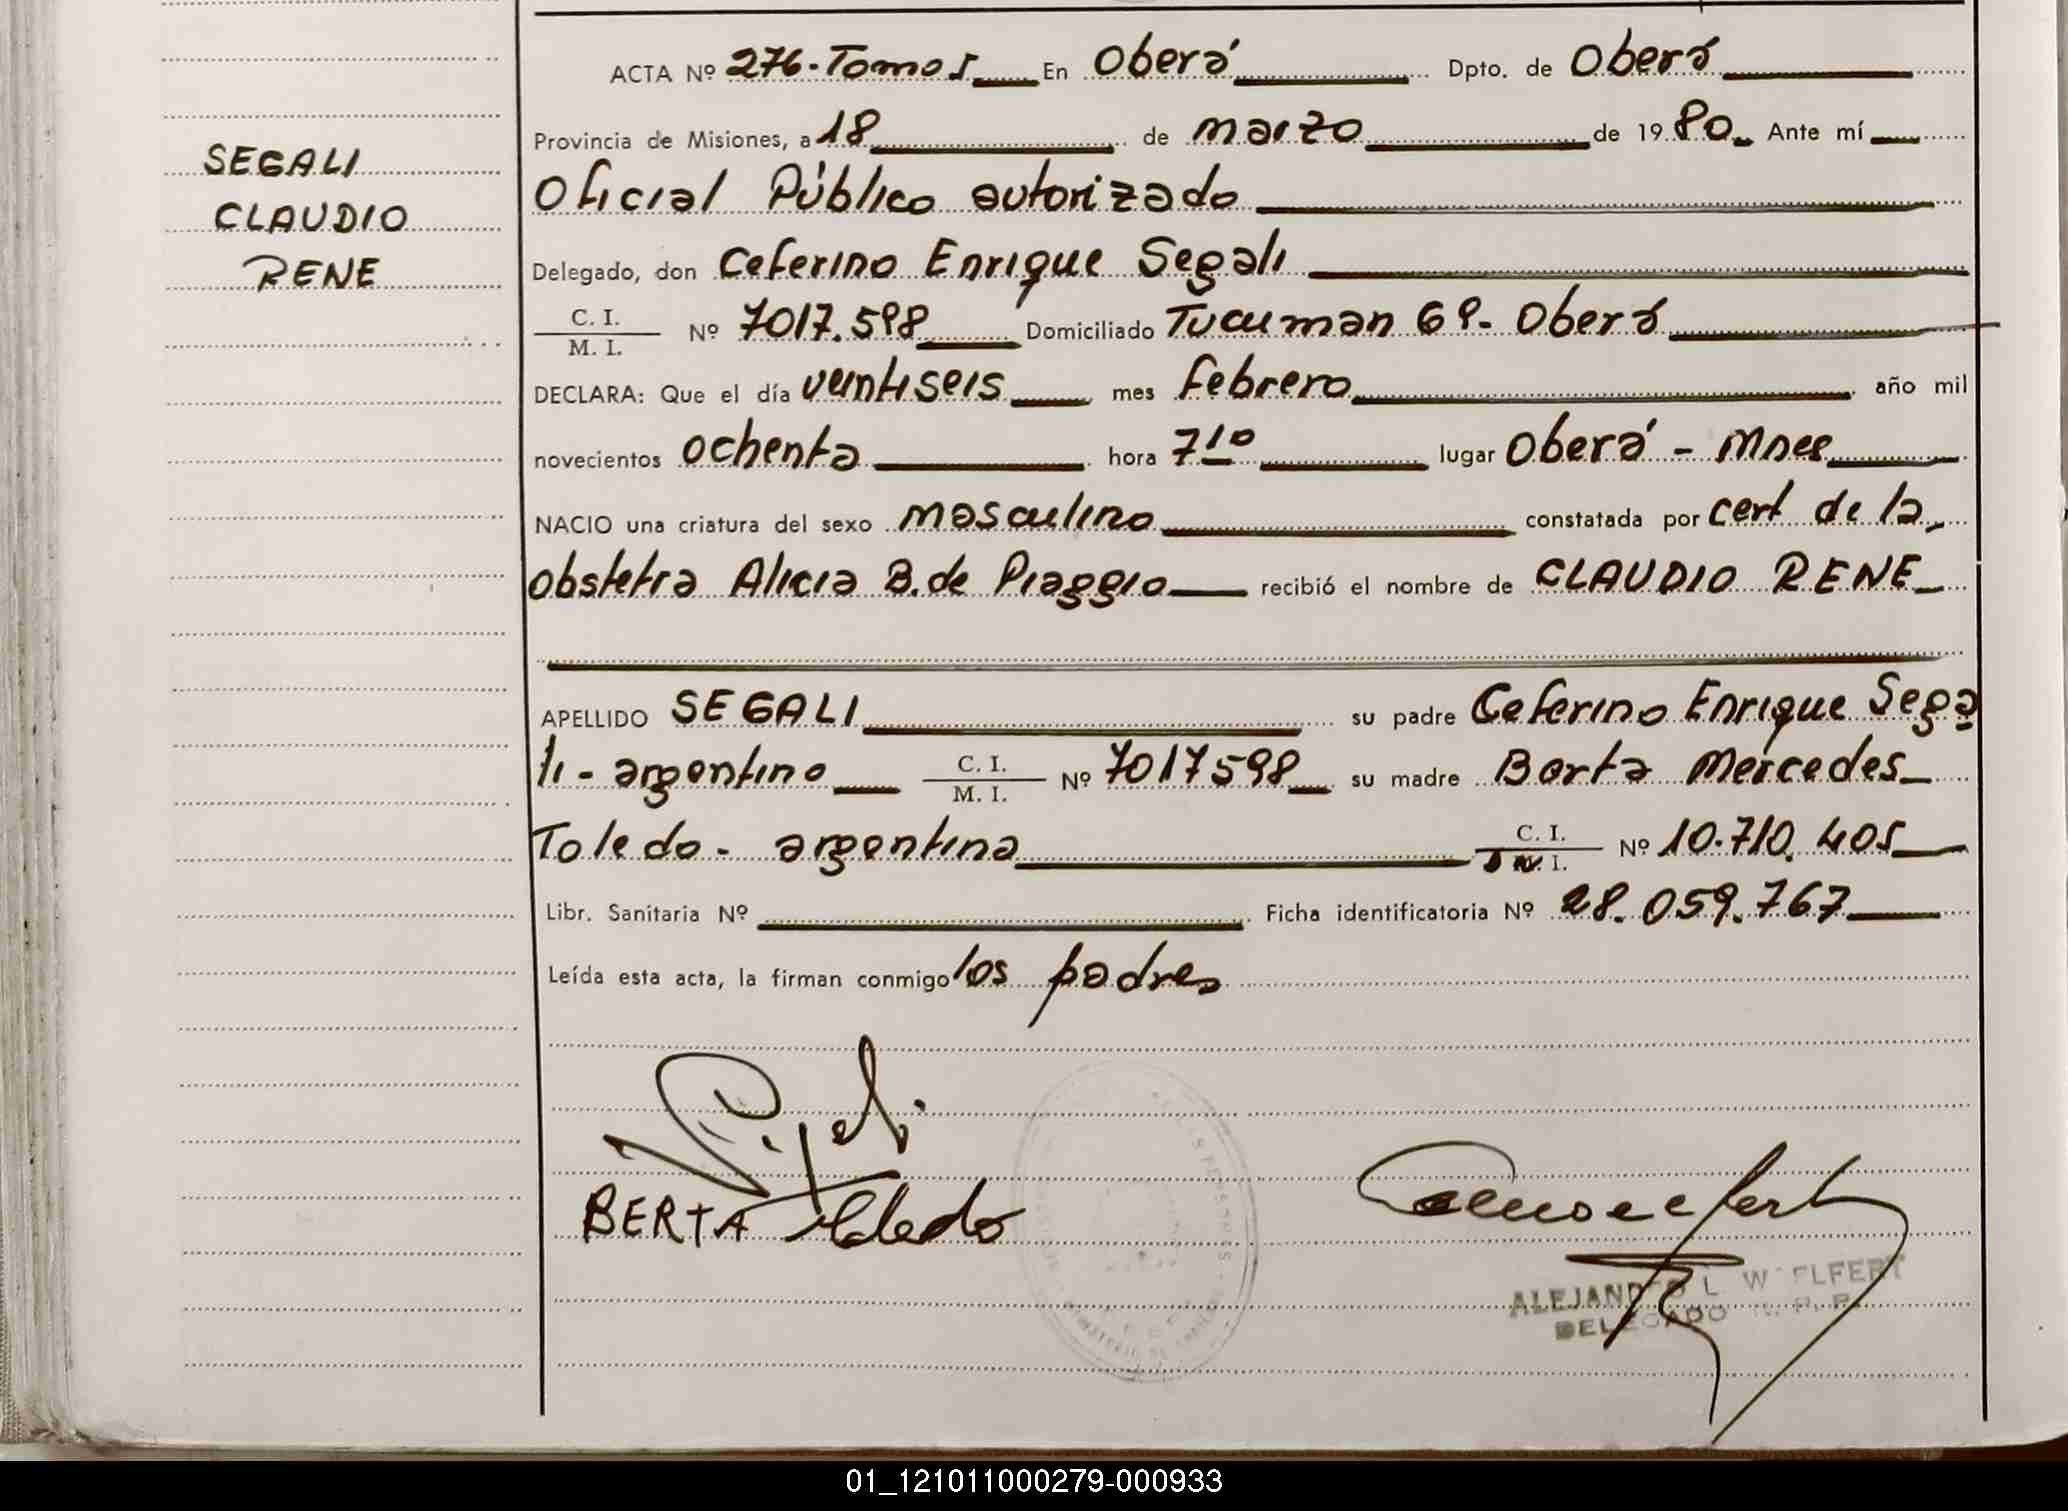 ACTA Nº 276-Tomo I En Oberá Dpto. de Oberá
Provincia de Misiones, a 18 de marzo de 1980. Ante mí
SEGALI
CLAUDIO
RENE
Oficial Público autorizado
Delegado, don Ceferino Enrique Segali
C. I. / M. I. Nº 7017.598 Domiciliado Tucuman 69- Oberá
DECLARA: Que el día veintiseis mes febrero año mil
novecientos ochenta hora 7 10 lugar Oberá - Mnes
NACIO una criatura del sexo masculino constatada por cert de la
obstetra Alicia B. de Piaggio recibió el nombre de CLAUDIO RENE
APELLIDO SEGALI su padre Ceferino Enrique Sega
li - argentino C. I. / M. I. Nº 7017598 su madre Berta Mercedes
Toledo - argentina C. I. Nº 10.710.405
Libr. Sanitaria Nº Ficha identificatoria Nº 28.059.767
Leída esta acta, la firman conmigo los padres
BERTA Toledo
DELEGADO
01_121011000279-000933